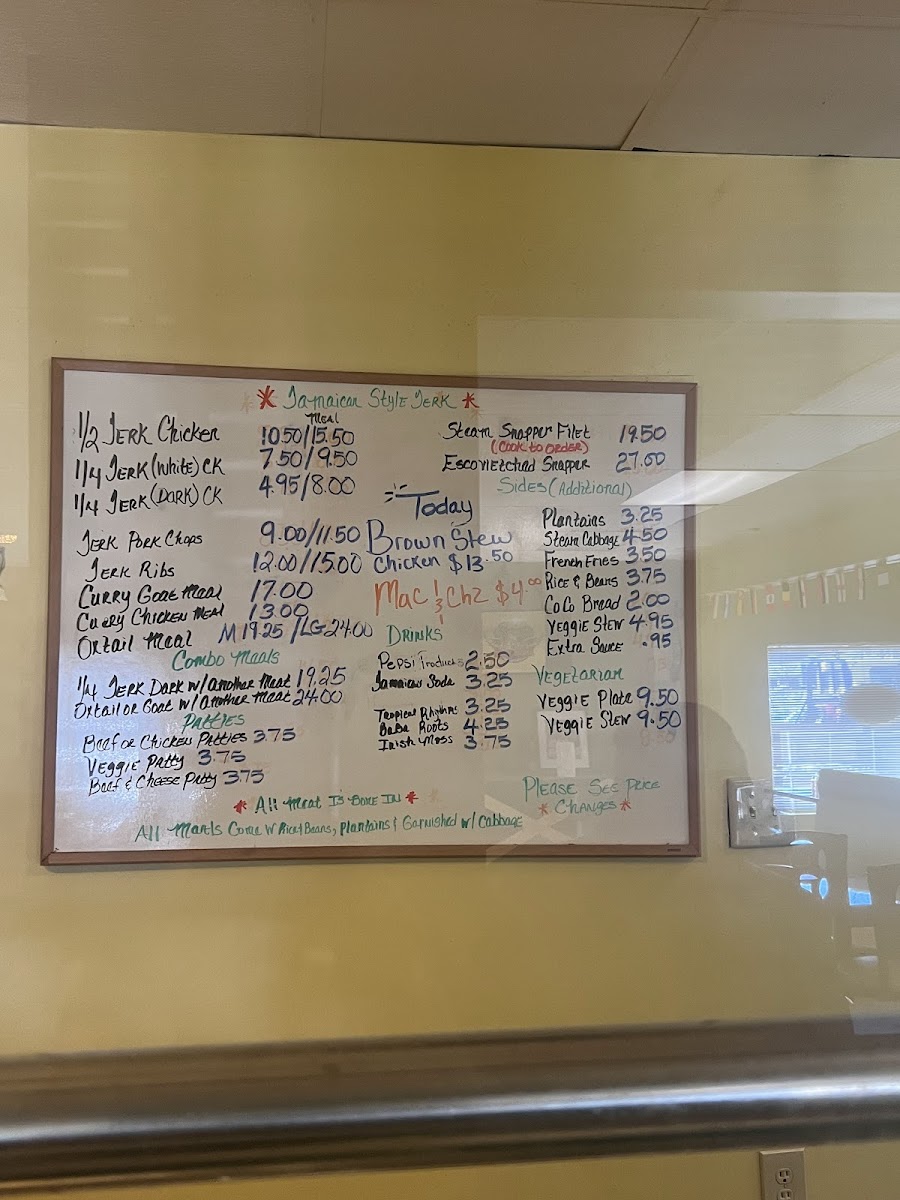 * Jamaican Style Jerk *
Meal
1/2 Jerk Chicken 10.50/15.50
1/4 Jerk (White) CK 7.50/9.50
1/4 Jerk (Dark) CK 4.95/8.00
Jerk Pork Chops 9.00/11.50
Jerk Ribs 12.00/15.00
Curry Goat Meal 17.00
Curry Chicken Meal 13.00
Oxtail Meal M 19.25/LG 24.00
Combo Meals
1/4 Jerk Dark w/ another Meat 19.25
Oxtail or Goat w/ another Meat 24.00
Patties
Beef or Chicken Patties 3.75
Veggie Patty 3.75
Beef & Cheese Patty 3.75
Today
Brown Stew
Chicken $13.50
Mac & Chz $4.00
Drinks
Pepsi Products 2.50
Jamaican Soda 3.25
Tropical Rhythms 3.25
Baba Roots 4.25
Irish Moss 3.75
Steam Snapper Filet 19.50
(Cook to Order)
Escovietched Snapper 27.00
Sides (Additional)
Plantains 3.25
Steam Cabbage 4.50
French Fries 3.50
Rice & Beans 3.75
CoCo Bread 2.00
Veggie Stew 4.95
Extra Sauce .95
Vegetarian
Veggie Plate 9.50
Veggie Stew 9.50
Please See Price
* Changes *
* All Meat Is Bone In *
All Meals Come w/ Rice & Beans, Plantains & Garnished w/ Cabbage